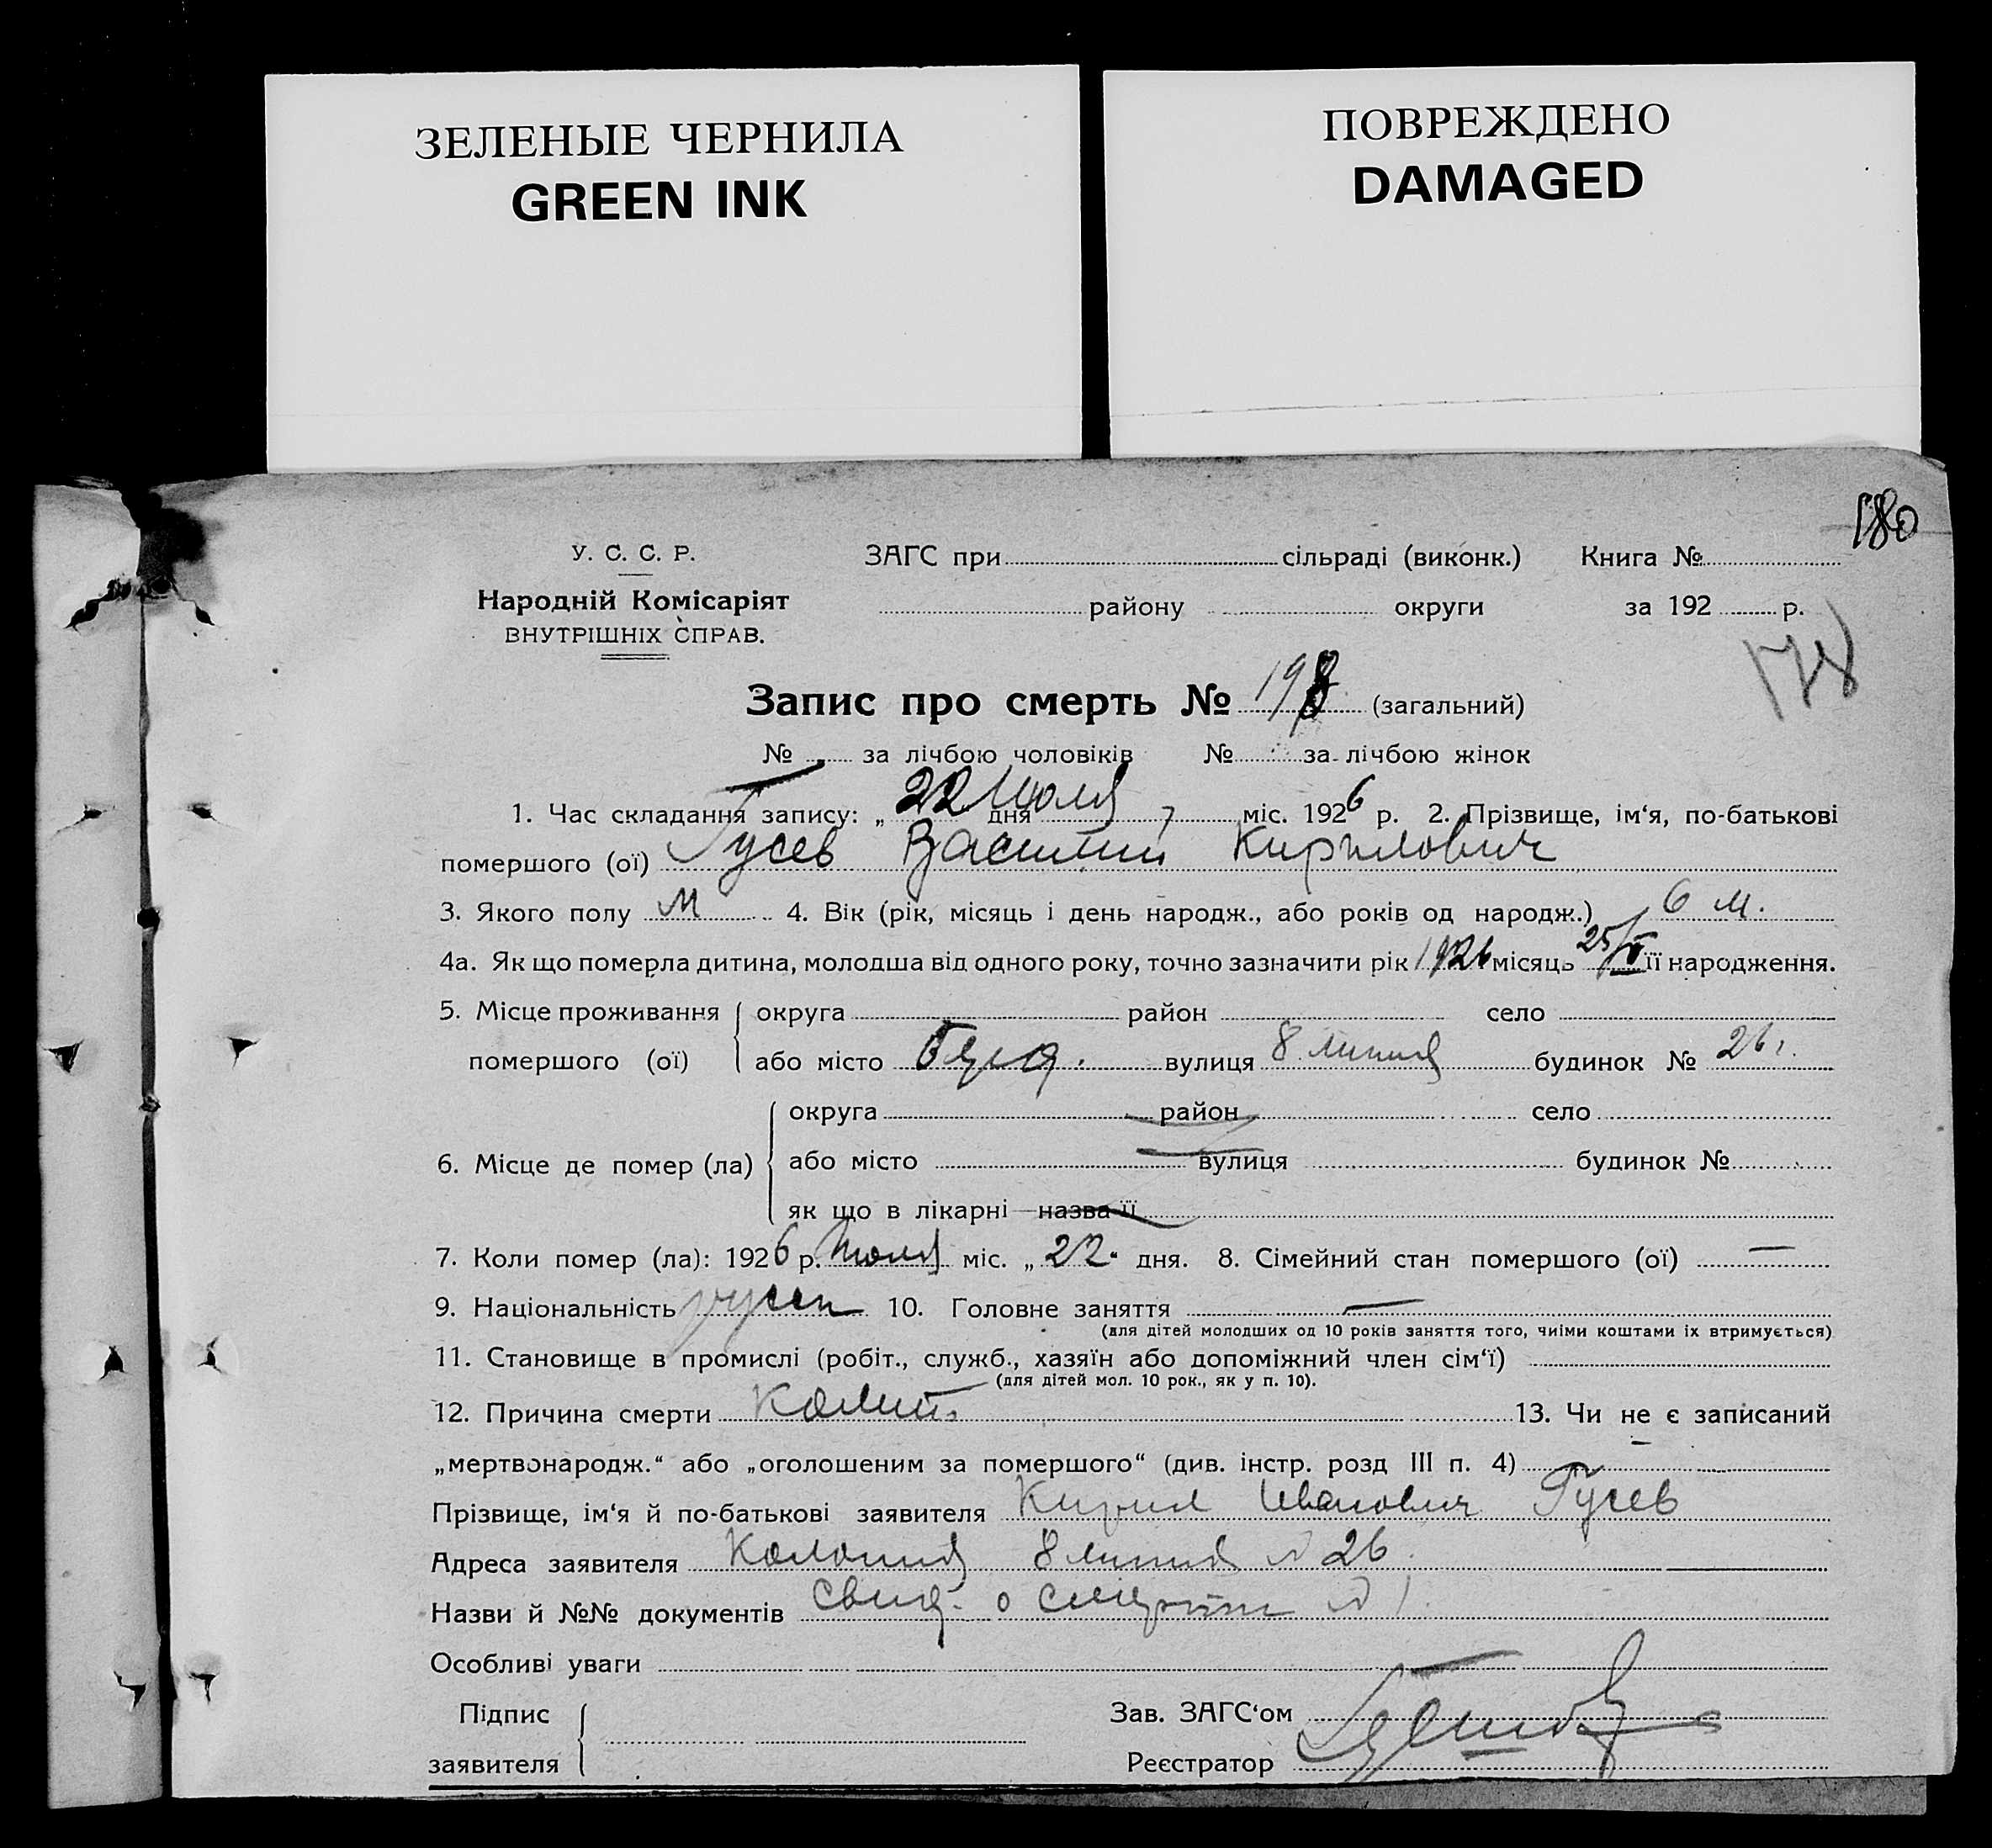 ЗЕЛЕНЫЕ ЧЕРНИЛА
GREEN INK
ПОВРЕЖДЕНО
DAMAGED
180
У. С. С. Р. ЗАГС при сільраді (виконк.) Книга №
Народній Комісаріят району округи за 192 р.
ВНУТРІШНІХ СПРАВ.
178
Запис про смерть № 198 (загальний)
№ за лічбою чоловіків № за лічбою жінок
1. Час складання запису: „22 дня Июля міс. 1926 р. 2. Прізвище, ім‘я, по-батькові
помершого (ої) Гусев Василий Кирилович
3. Якого полу М 4. Вік (рік, місяць і день народж., або років од народж.) 6 м.
4а. Як що померла дитина, молодша від одного року, точно зазначити рік 1926 місяць 25/ її народження.
5. Місце проживання округа район село
помершого (ої) або місто вулиця 8 линия будинок № 26
округа район село
6. Місце де помер (ла) або місто вулиця будинок №
як що в лікарні назва її
7. Коли помер (ла): 1926 р. Июля міс. „22“ дня. 8. Сімейний стан помершого (ої) —
9. Національність русск 10. Головне заняття —
(для дітей молодших од 10 років заняття того, чиїми коштами їх втримується)
11. Становище в промислі (робіт., служб., хазяїн або допоміжний член сім‘ї)
(для дітей мол. 10 рок., як у п. 10).
12. Причина смерти 13. Чи не є записаний
„мертвонародж.“ або „оголошеним за помершого“ (див. інстр. розд III п. 4) —
Прізвище, ім‘я й по-батькові заявителя Кирил Иванович Гусев
Адреса заявителя Колония 8 линия № 26
Назви й №№ документів Свид. о смерти № 1
Особливі уваги —
Підпис Зав. ЗАГС‘ом
заявителя Реєстратор